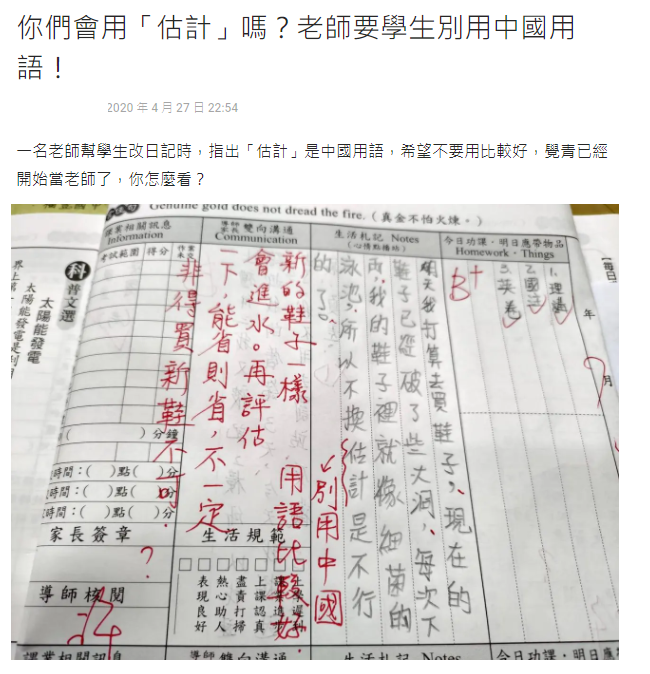 你們會用「估計」嗎？老師要學生別用中國用
語！
2020 年 4 月 27 日 22:54
一名老師幫學生改日記時，指出「估計」是中國用語，希望不要用比較好，覺青已經
開始當老師了，你怎麼看？
Genuine gold does not dread the fire.（真金不怕火煉。）
今日功課・明日應帶物品
Homework・Things
1.
2.
3. 英卷
B+
年
月
生活札記 Notes
（心情點播站）
明天我打算去買鞋子，現在的
鞋子已經破了些大洞，每次下
雨，我的鞋子裡就像細菌的
泳池，所以不換估計是不行
的了。
別用中國
用語比較好.
導師
家長 雙向溝通
Communication
新的鞋子一樣
會進水。再評估
一下，能省則省，不一定
非得買新鞋不可.
生活規範
上課認真
盡責打掃
熱心助人
表現良好
課業相關訊息
Information
考試範圍
得分
作業
未交
(　　)分鐘
時間：(　)點(　)分
時間：(　)點(　)分
時間：(　)點(　)分
家長簽章
?
導師核閱
科
普文選
太陽能發電
太陽能發電是利用
界上第一
【每日
課業相關訊息
導師 雙向溝通
生活札記 Notes
今日功課・明日應